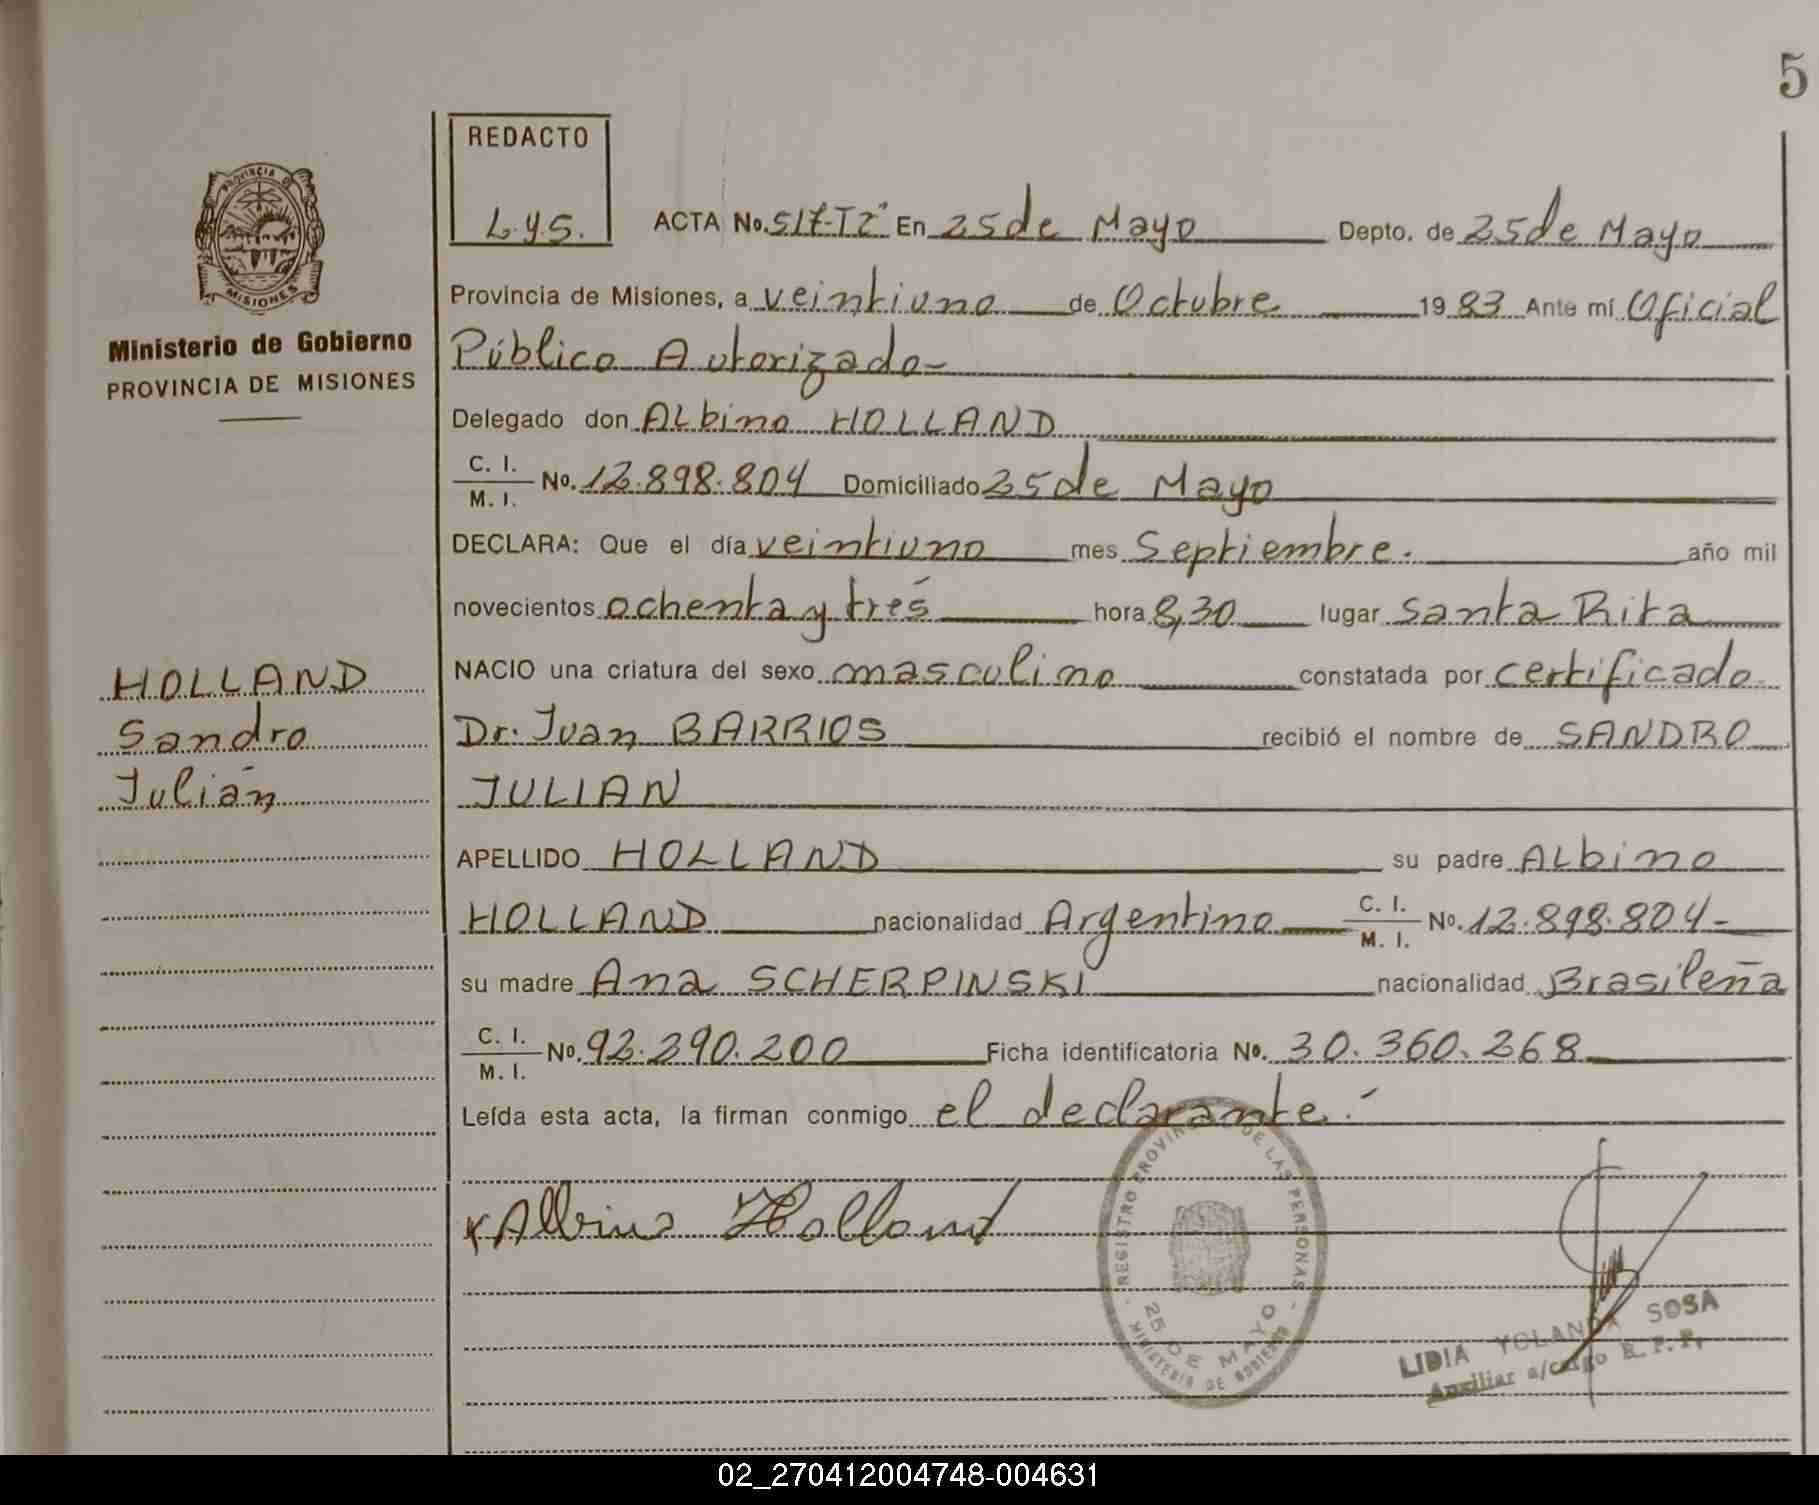 5
REDACTO
L.y.S.
PROVINCIA D
MISIONES
Ministerio de Gobierno
PROVINCIA DE MISIONES
HOLLAND
Sandro
Julián
ACTA No. 517-T2° En 25 de Mayo Depto. de 25 de Mayo
Provincia de Misiones, a veintiuno de Octubre 1983 Ante mí Oficial
Público Autorizado-
Delegado don Albino HOLLAND
C. I. / M. I. No. 12.898.804 Domiciliado 25 de Mayo
DECLARA: Que el día veintiuno mes Septiembre. año mil
novecientos ochenta y trés hora 8,30 lugar Santa Rita
NACIO una criatura del sexo masculino constatada por certificado
Dr. Juan BARRIOS recibió el nombre de SANDRO
JULIAN
APELLIDO HOLLAND su padre Albino
HOLLAND nacionalidad Argentino C. I. / M. I. No. 12.898.804-
su madre Ana SCHERPINSKI nacionalidad Brasileña
C. I. / M. I. No. 92.290.200 Ficha identificatoria No. 30.360.268
Leída esta acta, la firman conmigo el declarante.
x Albino Holland
- REGISTRO PROVINCIAL DE LAS PERSONAS -
25 DE MAYO
MINISTERIO DE GOBIERNO
LIDIA YOLANDA SOSA
Auxiliar a/cargo R. P. P.
02_270412004748-004631